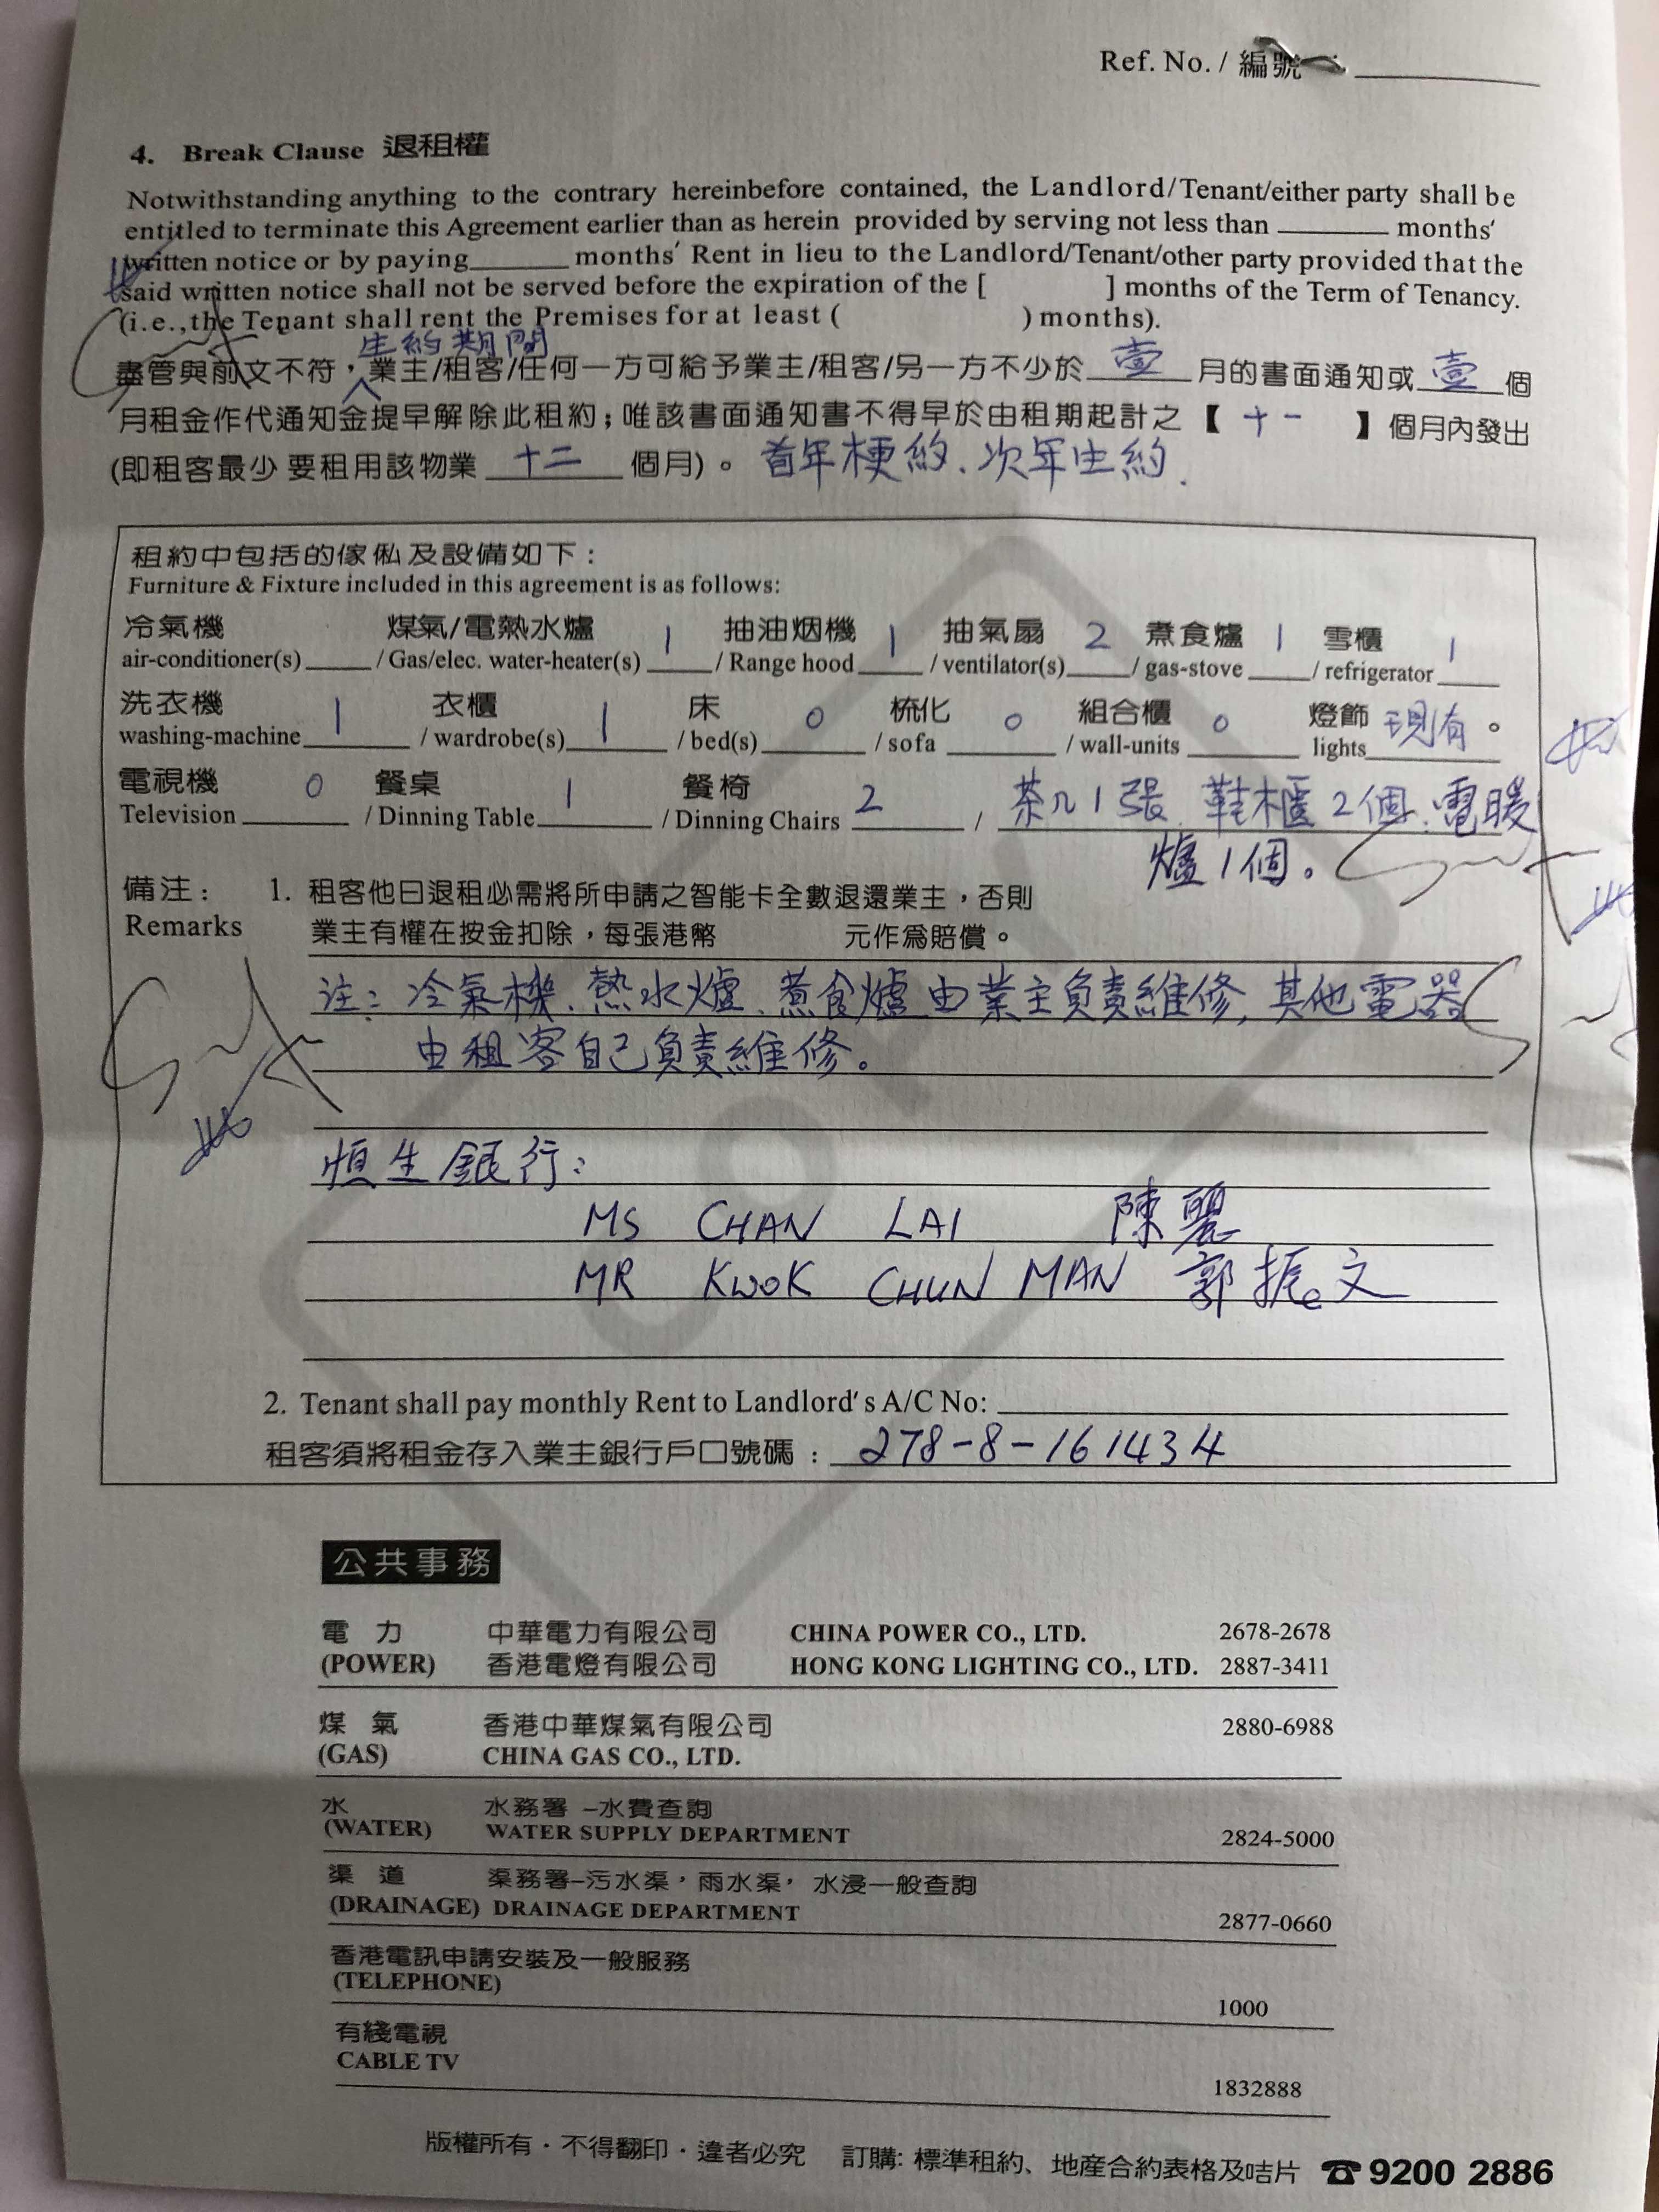 Ref. No. / 編號
4. Break Clause 退租權
Notwithstanding anything to the contrary hereinbefore contained, the Landlord/Tenant/either party shall be
entitled to terminate this Agreement earlier than as herein provided by serving not less than ______ months'
written notice or by paying______ months' Rent in lieu to the Landlord/Tenant/other party provided that the
said written notice shall not be served before the expiration of the [ ] months of the Term of Tenancy.
(i.e.,the Tenant shall rent the Premises for at least ( ) months).
生約期間
盡管與前文不符，業主/租客/任何一方可給予業主/租客/另一方不少於 壹 月的書面通知或 壹 個
月租金作代通知金提早解除此租約；唯該書面通知書不得早於由租期起計之【 十一 】個月內發出
(即租客最少要租用該物業 十二 個月)。 首年梗約、次年生約.
租約中包括的傢俬及設備如下：
Furniture & Fixture included in this agreement is as follows:
冷氣機 煤氣/電熱水爐 1 抽油烟機 1 抽氣扇 2 煮食爐 1 雪櫃 1
air-conditioner(s)_____ / Gas/elec. water-heater(s)_____ / Range hood_____ / ventilator(s)_____ / gas-stove_____ / refrigerator_____
洗衣機 1 衣櫃 1 床 0 梳化 0 組合櫃 0 燈飾 現有。
washing-machine_____ / wardrobe(s)_____ / bed(s)_____ / sofa_____ / wall-units_____ lights_____
電視機 0 餐桌 1 餐椅 2 茶几1張、鞋櫃2個、電暖
Television_____ / Dinning Table_____ / Dinning Chairs_____ /
爐1個。
備注： 1. 租客他日退租必需將所申請之智能卡全數退還業主，否則
Remarks 業主有權在按金扣除，每張港幣 元作為賠償。
注：冷氣機、熱水爐、煮食爐由業主負責維修，其他電器
由租客自己負責維修。
恒生銀行：
MS CHAN LAI 陳麗
MR KWOK CHUN MAN 郭振文
2. Tenant shall pay monthly Rent to Landlord's A/C No:
租客須將租金存入業主銀行戶口號碼： 278-8-161434
公共事務
電力 中華電力有限公司 CHINA POWER CO., LTD. 2678-2678
(POWER) 香港電燈有限公司 HONG KONG LIGHTING CO., LTD. 2887-3411
煤氣 香港中華煤氣有限公司 2880-6988
(GAS) CHINA GAS CO., LTD.
水 水務署 –水費查詢
(WATER) WATER SUPPLY DEPARTMENT 2824-5000
渠道 渠務署–污水渠，雨水渠，水浸一般查詢
(DRAINAGE) DRAINAGE DEPARTMENT 2877-0660
香港電訊申請安裝及一般服務
(TELEPHONE) 1000
有綫電視
CABLE TV 1832888
版權所有．不得翻印．違者必究 訂購: 標準租約、地產合約表格及咭片 ☎9200 2886
COPY